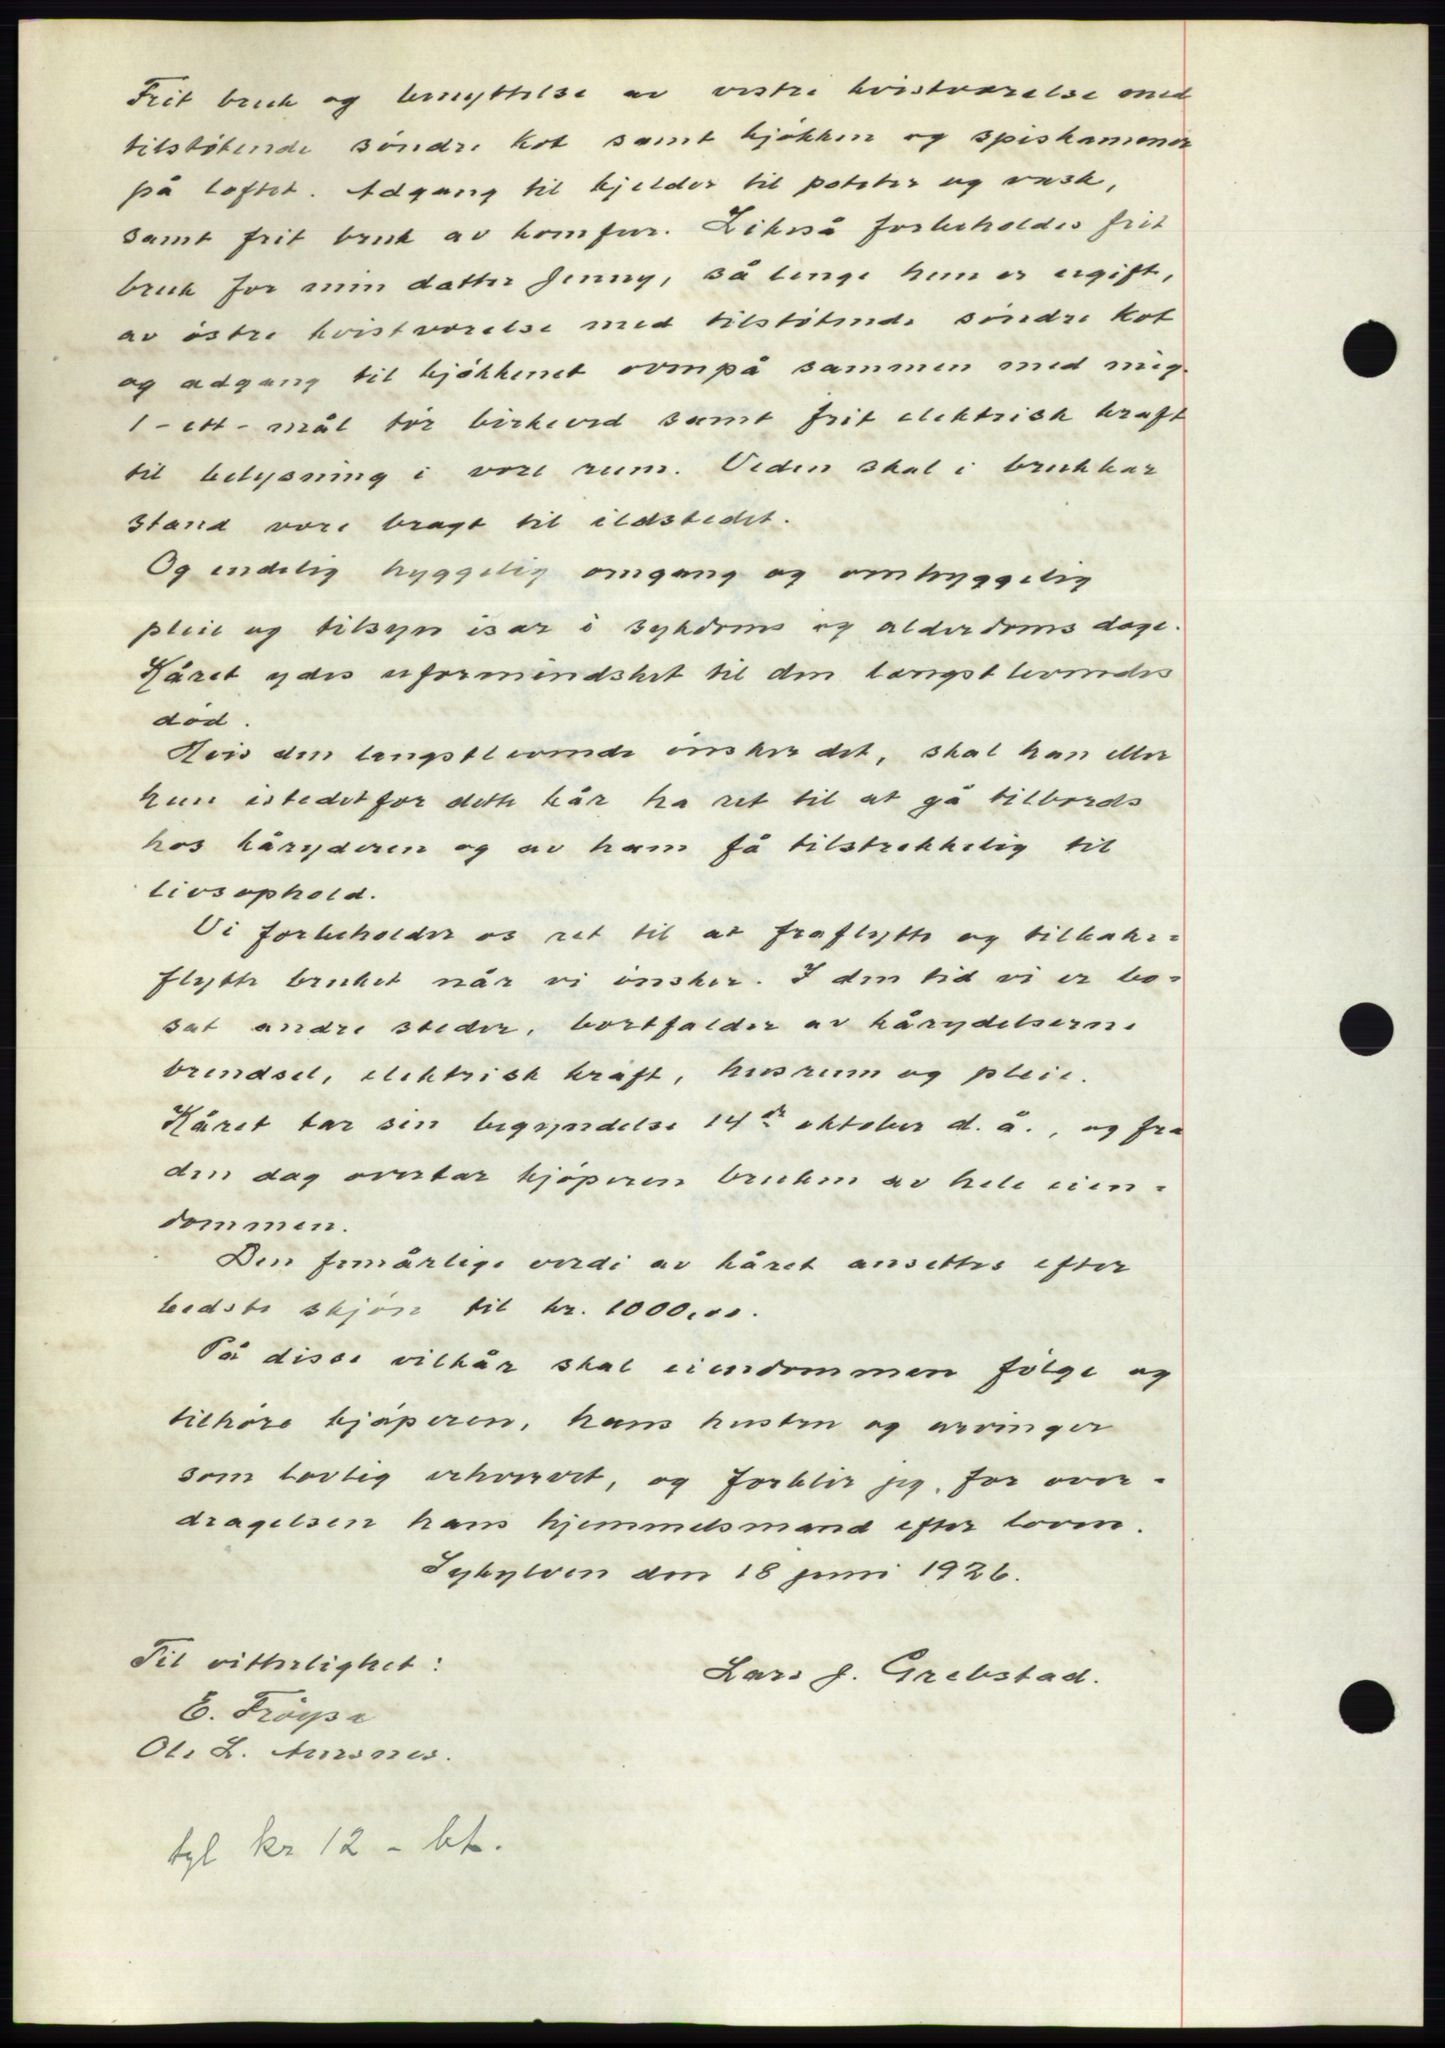 Frit bruk og benyttelse av vestre kvistværelse med
tilstötende söndre kot samt kjökken og spiskammer
på loftet. Adgang til kjelder til poteter og vask,
samt frit bruk av komfur. Likeså forbeholdes frit
bruk for min datter Jenny, så lenge hun er ugift,
av östre kvistværelse med tilstötende söndre kot
og adgang til kjökkenet ovenpå sammen med mig.
1 - ett - mål tör birkeved samt frit elektrisk kraft
til belysning i våre rum. Veden skal i brukbar
stand være bragt til ildstedet.
Og endelig hyggelig omgang og omhyggelig
pleie og tilsyn især i sykdoms og alderdoms dage.
Kåret ydes uformindsket til den længstlevendes
död.
Hvis den lengstlevende önsker det, skal han eller
hun istedetfor dette kår ha ret til at gå tilbords
hos kåryderen og av ham få tilstrekkelig til
livsophold.
Vi forbeholder os ret til at fraflytte og tilbake=
flytte bruket når vi önsker. I den tid vi er bo=
sat andre steder, bortfalder av kårydelserne
brendsel, elektrisk kraft, husrum og pleie.
Kåret tar sin begyndelse 14de oktober d. å., og fra
den dag overtar kjöperen bruken av hele eien=
dommen.
Den femårlige verdi av kåret ansettes efter
bedste skjön til kr. 1000,00.
På disse vilkår skal eiendommen fölge og
tilhöre kjöperen, hans hustru og arvinger
som lovlig erhvervet, og forblir jeg for over-
dragelsen hans hjemmelsmand efter loven.
Sykylven den 18 juni 1926.
Til vitterlighet:
Lars J. Grebstad.
E. Fröysa
Ole L. Aursnes.
tgl kr 12 - bt.